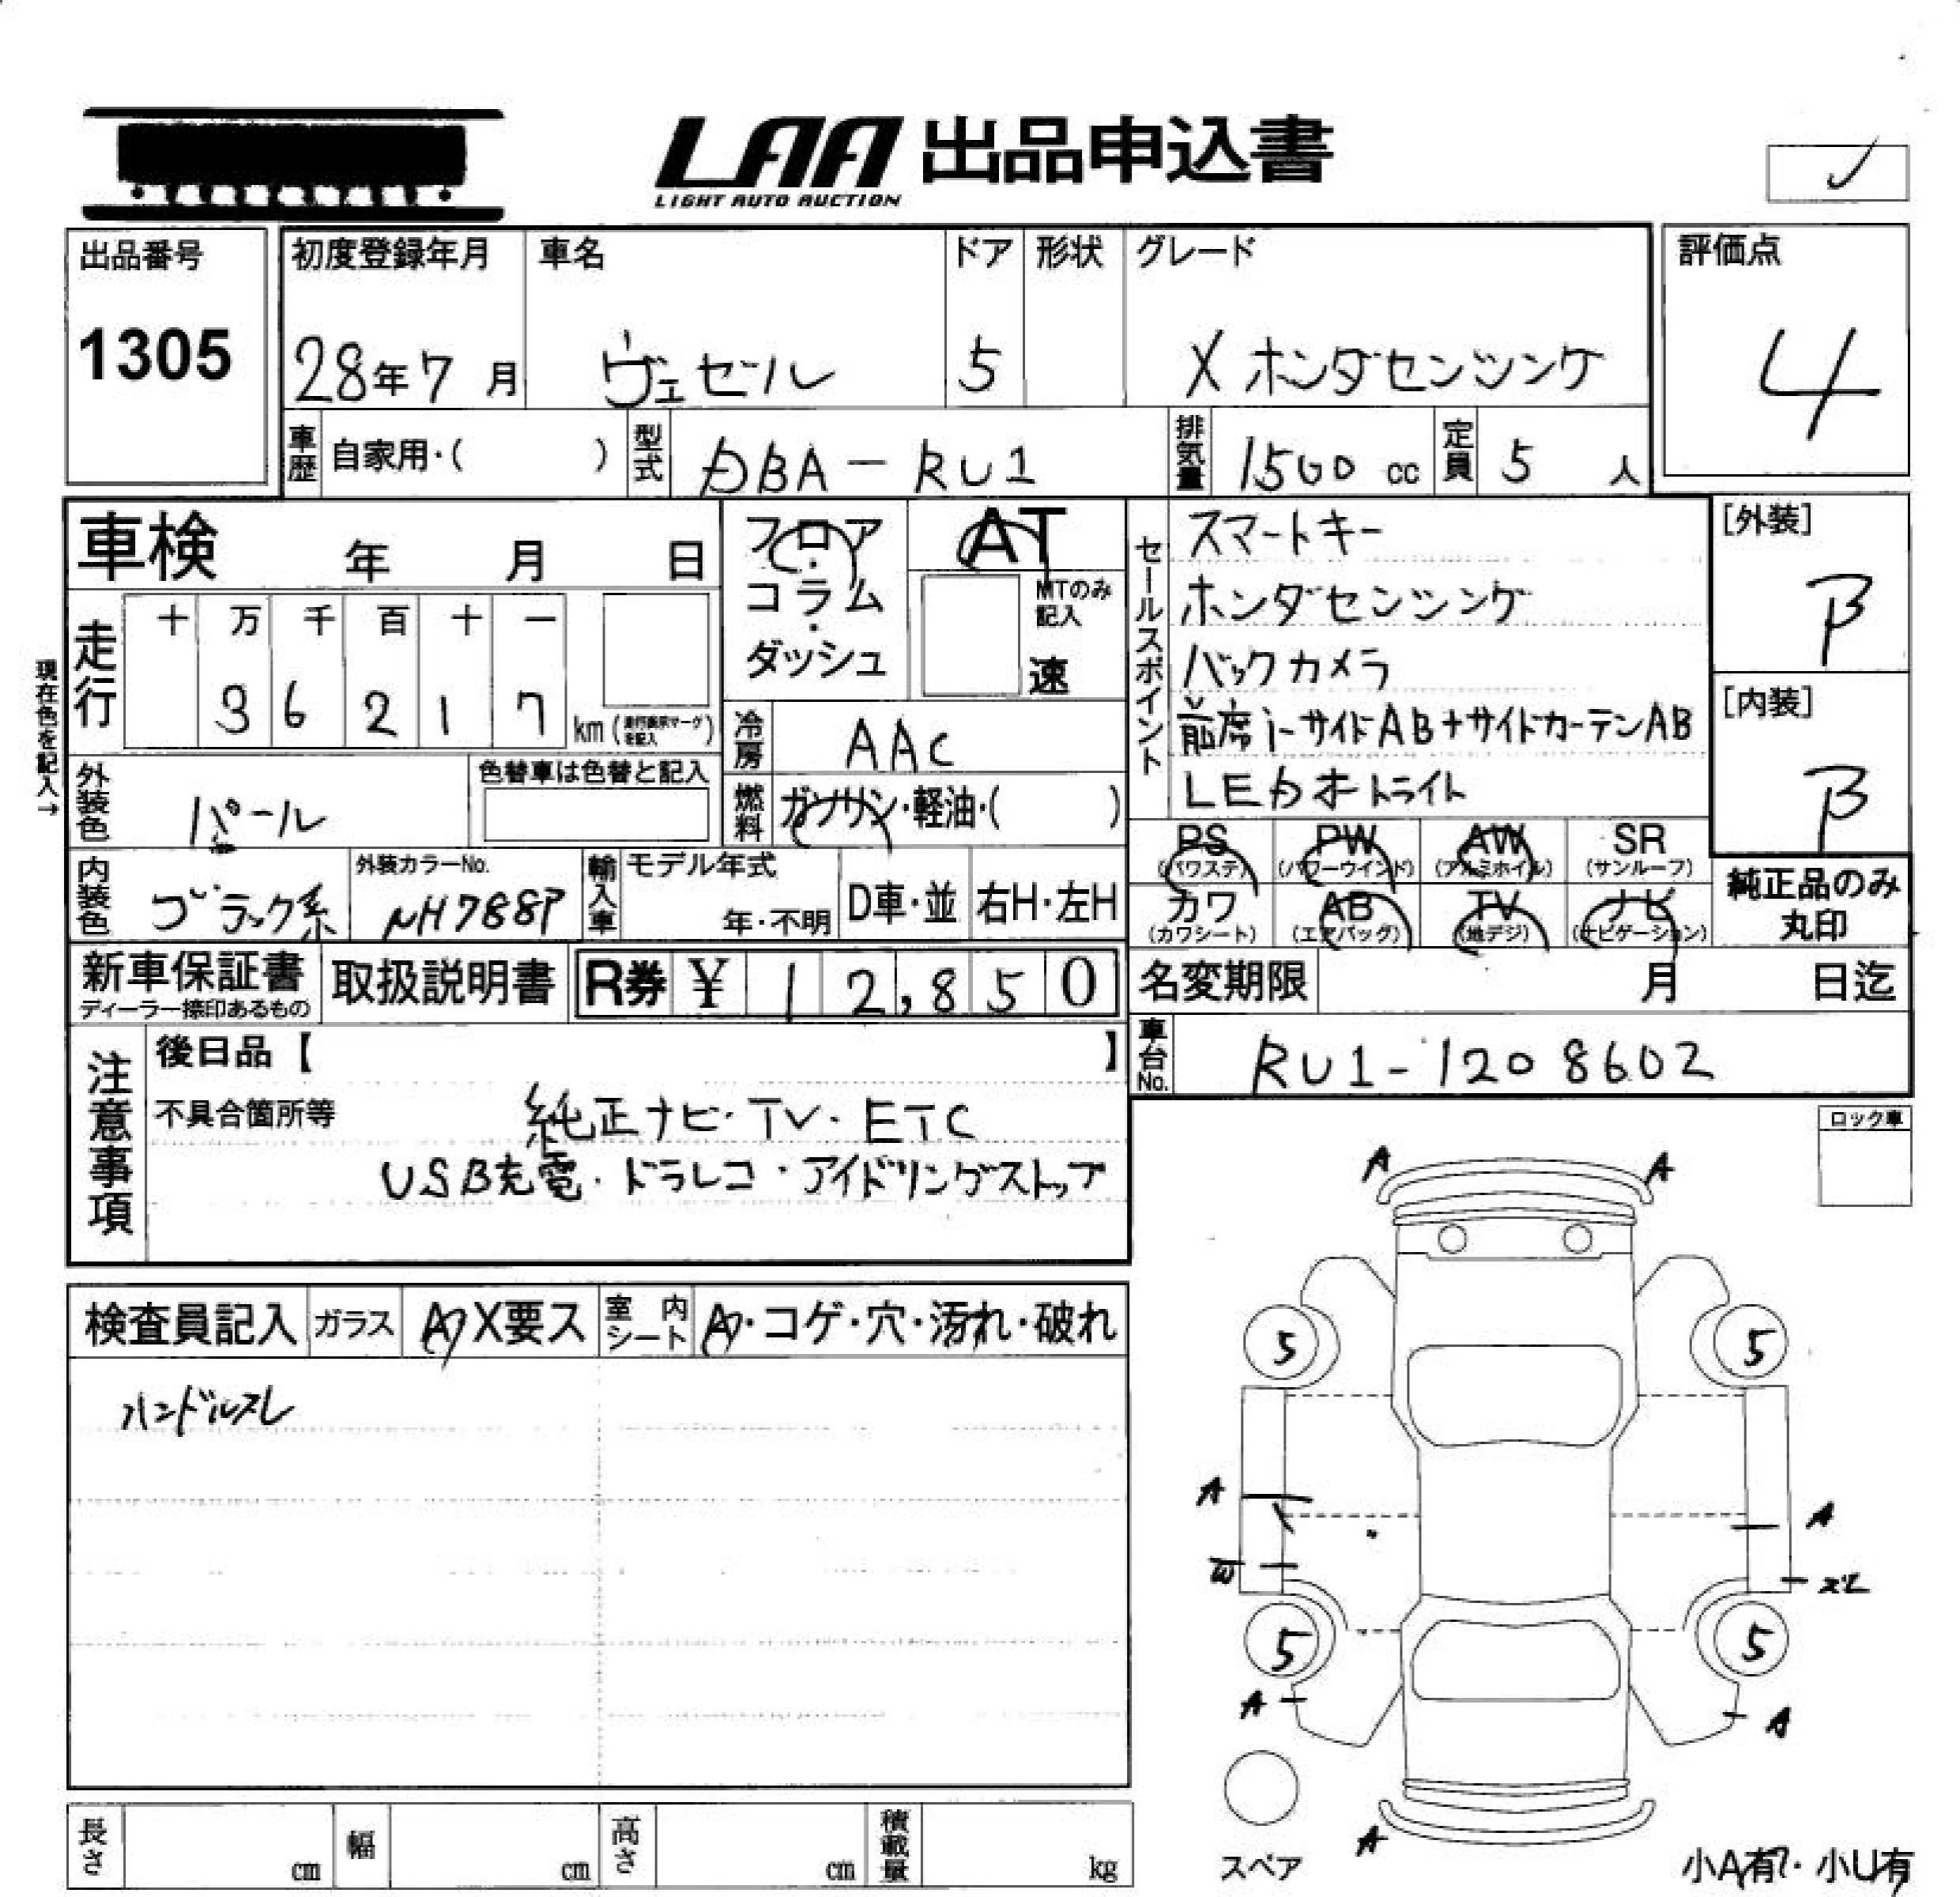 LAA 出品申込書
LIGHT AUTO AUCTION
出品番号
1305
初度登録年月
28年7月
車名
ヴェゼル
ドア
5
形状
グレード
X ホンダセンシング
評価点
4
車歴 自家用・( )
型式 DBA-RU1
排気量 1500 cc
定員 5 人
車検 年 月 日
フロア・コラム・ダッシュ
AT
MTのみ記入
速
セールスポイント
スマートキー
ホンダセンシング
バックカメラ
前席i-サイドAB+サイドカーテンAB
LEDオートライト
[外装]
B
[内装]
B
現在色を記入→
走行
十 万 千 百 十 一
3 6 2 1 7
km (走行表示マークを記入)
冷房 AAC
外装色 パール
色替車は色替と記入
燃料 ガソリン・軽油・( )
PS (パワステ)
PW (パワーウインド)
AW (アルミホイル)
SR (サンルーフ)
カワ (カワシート)
AB (エアバッグ)
TV (地デジ)
ナビ (ナビゲーション)
純正品のみ
丸印
内装色 ブラック系
外装カラーNo.
NH788P
輸入車
モデル年式
年・不明
D車・並
右H・左H
新車保証書
ディーラー捺印あるもの
取扱説明書
R券 ¥ 12,850
名変期限 月 日迄
車台No. RU1-1208602
注意事項
後日品【 】
不具合箇所等
純正ナビ・TV・ETC
USB充電・ドラレコ・アイドリングストップ
ロック車
検査員記入
ガラス
A X要ス
室内シート
A・コゲ・穴・汚れ・破れ
ハンドルスレ
A A
5 5
A A
W ズレ
5 5
A A
A
スペア
小A有・小U有
長さ cm
幅 cm
高さ cm
積載量 kg